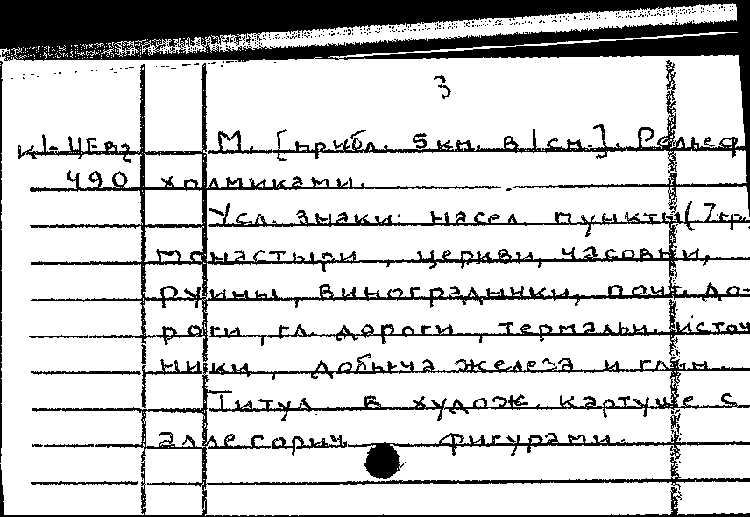 3
К1-ЦЕвг М. [прибл. 5км. в 1см.]. Рельеф
490 холмиками.
Усл. знаки: насел. пункты (7гр.)
монастыри, церкви, часовни,
руины, виноградники, почт. до-
роги, гл. дороги, термальн. источ
ники, добыча железа и глин.
Титул в худож. картуше с
аллегорич фигурами.